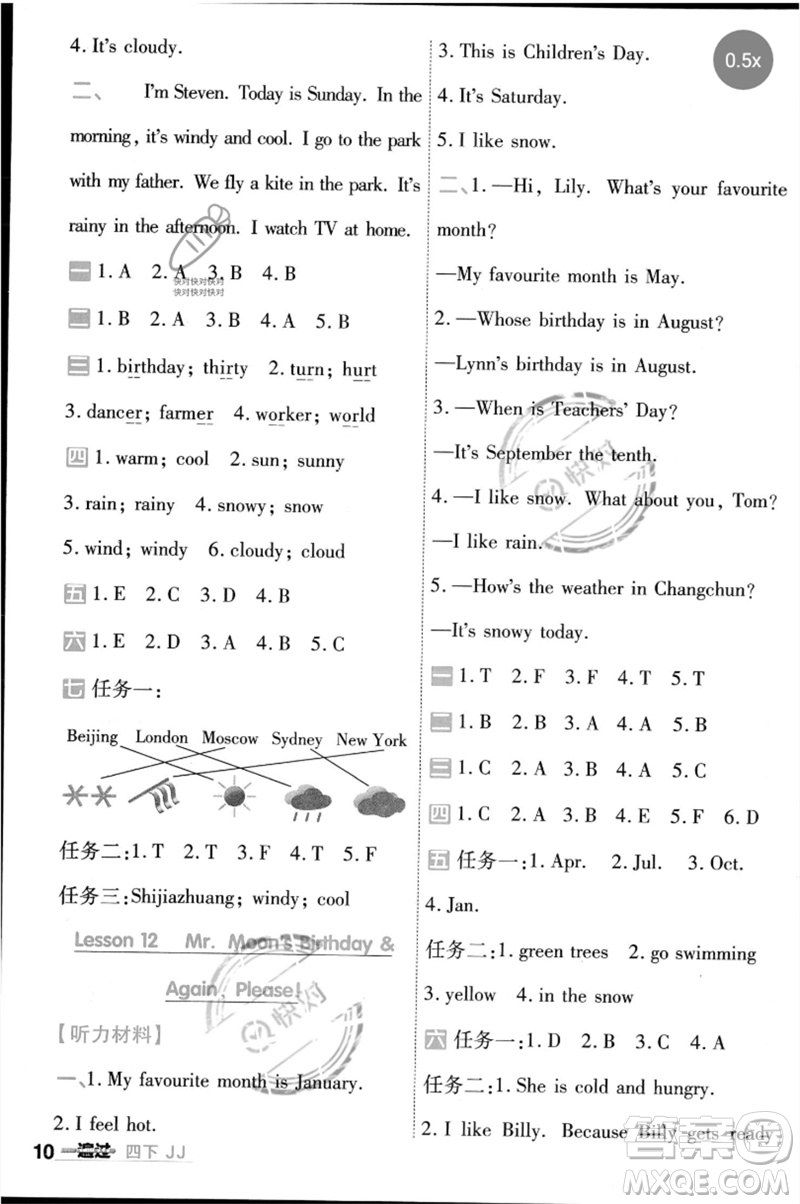 4. It's cloudy.
二、 I'm Steven. Today is Sunday. In the
morning, it's windy and cool. I go to the park
with my father. We fly a kite in the park. It's
rainy in the afternoon. I watch TV at home.
一 1. A 2. A 3. B 4. B
快对快对快对
快对快对快对
二 1. B 2. A 3. B 4. A 5. B
三 1. birthday; thirty 2. turn; hurt
3. dancer; farmer 4. worker; world
四 1. warm; cool 2. sun; sunny
3. rain; rainy 4. snowy; snow
5. wind; windy 6. cloudy; cloud
五 1. E 2. C 3. D 4. B
六 1. E 2. D 3. A 4. B 5. C
七 任务一:
Beijing London Moscow Sydney New York
任务二:1. T 2. F 3. T 4. T 5. F
任务三:Shijiazhuang; windy; cool
Lesson 12 Mr. Moon's Birthday &
Again, Please!
【听力材料】
一、1. My favourite month is January.
2. I feel hot.
10 一遍过 四下 JJ
0.5x
3. This is Children's Day.
4. It's Saturday.
5. I like snow.
二、1. —Hi, Lily. What's your favourite
month?
—My favourite month is May.
2. —Whose birthday is in August?
—Lynn's birthday is in August.
3. —When is Teachers' Day?
—It's September the tenth.
4. —I like snow. What about you, Tom?
—I like rain.
5. —How's the weather in Changchun?
—It's snowy today.
一 1. T 2. F 3. F 4. T 5. T
二 1. B 2. B 3. A 4. A 5. B
三 1. C 2. A 3. B 4. A 5. A
四 1. C 2. A 3. B 4. E 5. F 6. D
五 任务一:1. Apr. 2. Jul. 3. Oct.
4. Jan.
任务二:1. green trees 2. go swimming
3. yellow 4. in the snow
六 任务一:1. D 2. B 3. C 4. A
任务二:1. She is cold and hungry.
2. I like Billy. Because Billy gets ready
快对
快对
答案圈
MXQE.COM